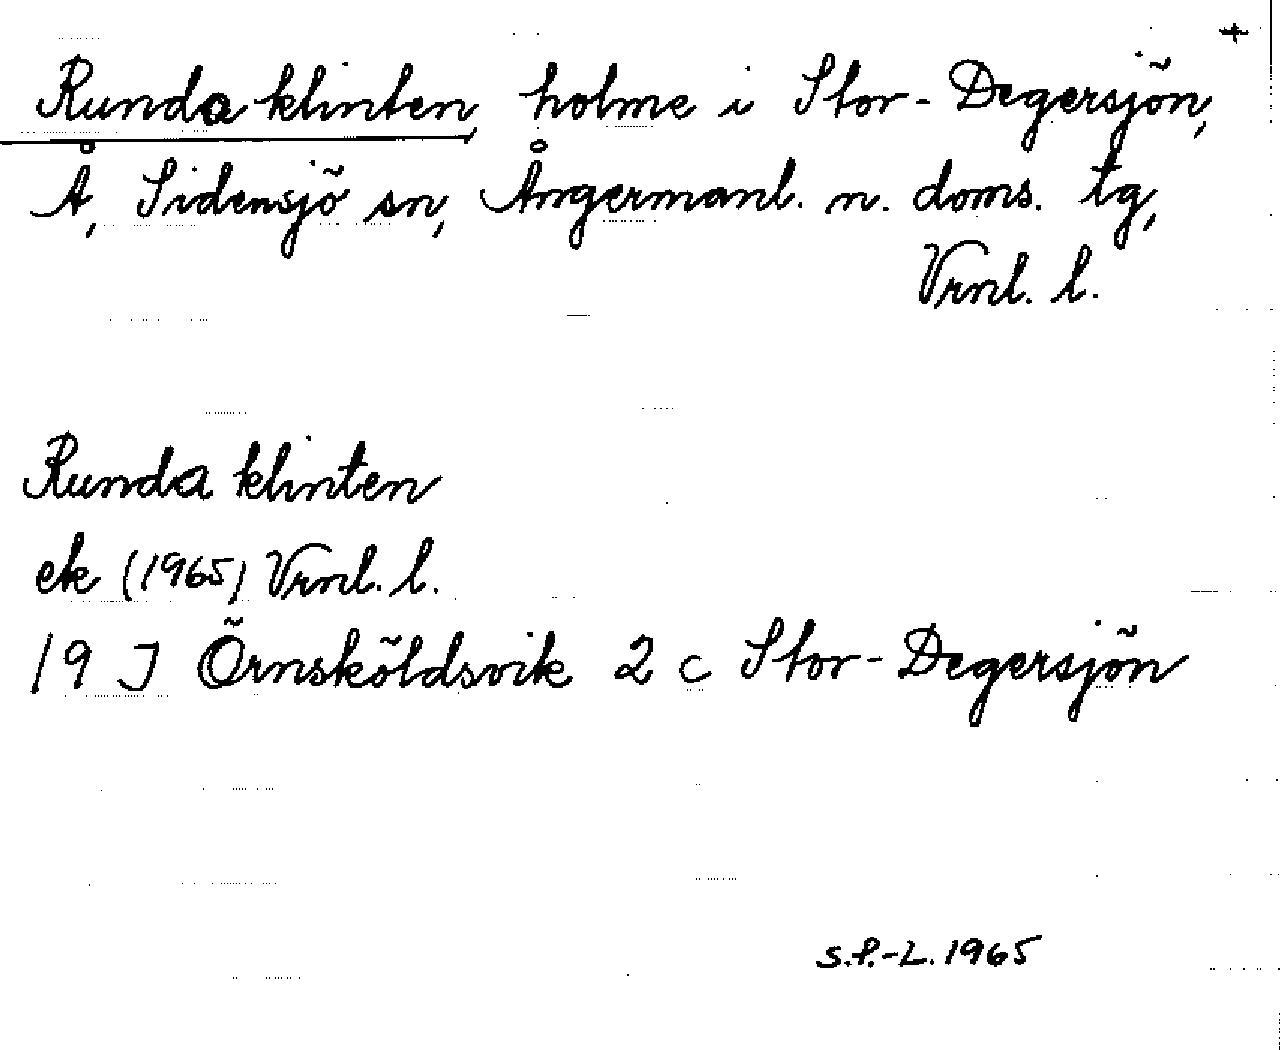 +
Runda klinten, holme i Stor-Degersjön,
Å, Sidensjö sn, Ångermanl. n. doms. tg,
Vrnl. l.
Runda klinten
ek (1965) Vrnl. l.
19 J Örnsköldsvik 2 c Stor-Degersjön
S.P.-L. 1965